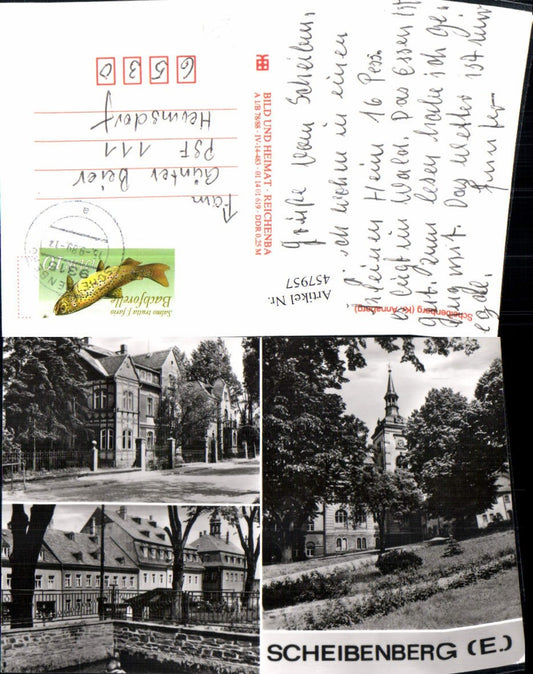 Grüße vom Scheibenb.
ich wohne in einen
kleinen Heim 16 Pers.
es liegt im Wald. Das Essen ist
gut. Zum lesen habe ich ge-
nug mit. Das Wetter ist mir
egal.
Fam
Günter Beier
PSF 111
Hermsdorf
6530
Salmo trutta f. fario
Bachforelle
BILD UND HEIMAT · REICHENBA
A 1/B 78/88 · IV-14-483 · 01 14 01 619 · DDR 0,25 M
Scheibenberg (Kr. Annaberg)
Artikel Nr.
457957
SCHEIBENBERG (E.)